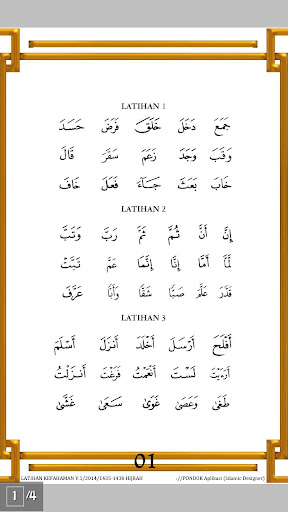 LATIHAN 1
جَمَعَ دَخَلَ خَلَقَ فَرَضَ حَسَدَ
وَقَبَ وَجَدَ زَعَمَ سَقَرَ قَالَ
خَابَ بَعَثَ جَاءَ فَعَلَ خَافَ
LATIHAN 2
إِنَّ أَنَّ ثُمَّ ثَمَّ رَبَّ وَتَبَّ
لَمَّا أَمَّا إِنَّا إِنَّمَا عَمَّ تَبَّتْ
قَدَّرَ عَلَّمَ صَبًّا شَقًّا وَأَبًّا عَرَّفَ
LATIHAN 3
أَفْلَحَ أَرْسَلَ أَخْلَدَ أَنْزَلَ أَسْلَمَ
أَرَءَيْتَ لَسْتَ أَنْعَمْتَ فَرَغْتَ أَنْزَلْتُ
طَغَى وَعَصَى غَوَى سَعَى غَشَّى
01
LATIHAN KEFAHAMAN V.1/2014/1435-1436 HIJRAH ://PONDOK Aplikasi (Islamic Designer)
1 /4